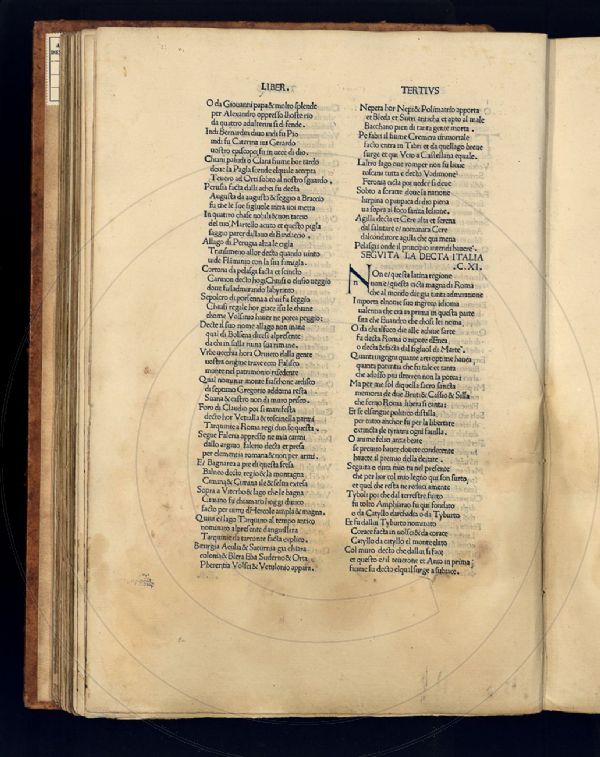 LIBER.
TERTIVS
O da Giouanni papa & molto splende
per Alexandro oppresso lhoste rio
da quatro adalterini si difende.
Indi Bernardin diuo indi fu Pio
indi fu Caterina iui Gerardo
uostro episcopo fu in uece di dio.
Chiani paluda o Clana fiume hor tardo
doue la Paglia scende el quale accepta
Teuero ad Orti sobto al nostro sguardo.
Perusia facta dalli achei fu decta
Augusta da augusto & seggio a Braccio
fu che le sue figliuole mitra uoi metta
In quatro chase nobili & non tacceo
del tuo Martello acuto et questo piglia
saggio parer dallauo di Binduccio.
Allago di Perugia alza le ciglia
Transimeno allor decto quando uinto
uide Flaminio con la sua famiglia.
Cortona da pelasgi facta et scincto
Carmon decto hoggi Chiusi o clusio ueggio
doue fu ladmirando labyrinto
Sepolcro di porsenna a chui fu seggio
Chiusi regale hor giace itu le chiane
che me Volsinio hauer ne potea peggio:
Decte il suo nome allago non inane
qual di Bolsena dicesi al presente
da chui salla ruina sua rimane.
Vrbe uecchia hora Oruieto dalla gente
uostra origine traxe com Falisco
monte nel patrimonio residente
Qual nominar monte fiaschone ardisco
di septimo Gregorio addorna festa
Suana & castro non di muro prisco.
Foro di Claudio poi si manifesta
decto hor Vetralla & toscanella parmi
Tarquinie a Roma regi duo se questa.
Segue Faleria appresso ne mia carmi
dallo argiuo falerio decta et presa
per elementia romana & non per armi.
E/ Bagnarea a piedi questa scesa
Balneo decto regio & la montagna
Cimina & Cimina ale & selua extesa
Sopra a Viterbo & lago che le bagna
Cimino fu chiamato hoggi di uico
facto per uirtu d'Hercole ampla & magna.
Quiui e/ lago Tarquino al tempo antico
nominato al presente d'anguillara
Tarquinie da tarconte facta explico.
Beturgia Aculia & Saturnia gia chiara
colonia & Blera Eba Suderno & Orta
Pherentia Volsci & Vetulonio appara.
Nepera hor Nepi & Polimartio apporta
et Bieda et Sutri anticha et apto al male
Bacchano pien di tanta gente morta.
Pe sabii al fiume Cremera immortale
facto entra in Tibri et da quellago breue
surge et qui Veio a Castellana equale.
Laltro lago oue romper non fu lieue
toscana tutta e decto Vodimone
Feronia cicla poi ueder si deue
Sobto a soracte doue la natione
hirpina o pur pacis di dio piena
ua sopra al foco sanza lesione.
Agilla decta et Cere alta et serena
dal salutare e/ nominata Cere
dal conditore agilla che qui mena
Pelasgi onde il principio intendi hauere.
SEGVITA LA DECTA ITALIA
.C.XI.
n
NOn e/ questa latina regione
non e/ questa citta magna di Roma
che al mondo die gia tanta admiratione
Importa el nome suo ingresa idioma
ualentia che era in prima in questa parte
sita che Euandro che chosi lei noma
O da chi isisoco die alle achiue sarte
fu decta Roma o nipote d'Enea
o decta & facta dal figliuol di Marte.
Quanti ingegni quante arti optime hauea
quanta potentia che fu tale et tanta
che adosso piu tenere non la potea:
Ma per me sol di quella sacro sancta
memoria de duo Bruti & Cassio & Silla
che fenno Roma libera si canta:
Et se el singue politico distilla
per tutto anchor fu per la libertate
extincta de tyranni ogni fauilla.
O anime felici anzi beate
se premio hauer douete condecente
hauete al premio della deitate.
Seguita e dura mio tu nel presente
che per lor col mio legno qui son surto,
et quel che resta ne reduci a mente
Tyboli poi che dal terrestre furto
fu tolto Amphiarao fu qui fondato
o da Catyllo d'archadia o da Tyburto
Et fu dallui Tyburto nominato
Corace facta in uolsci & da corace
Catyllo da catyllo el monte elato
Col muro decto che dallui si face
et questo e/ il teuerone et Anio in prima
fiume fu decto el qual surge a subiace.